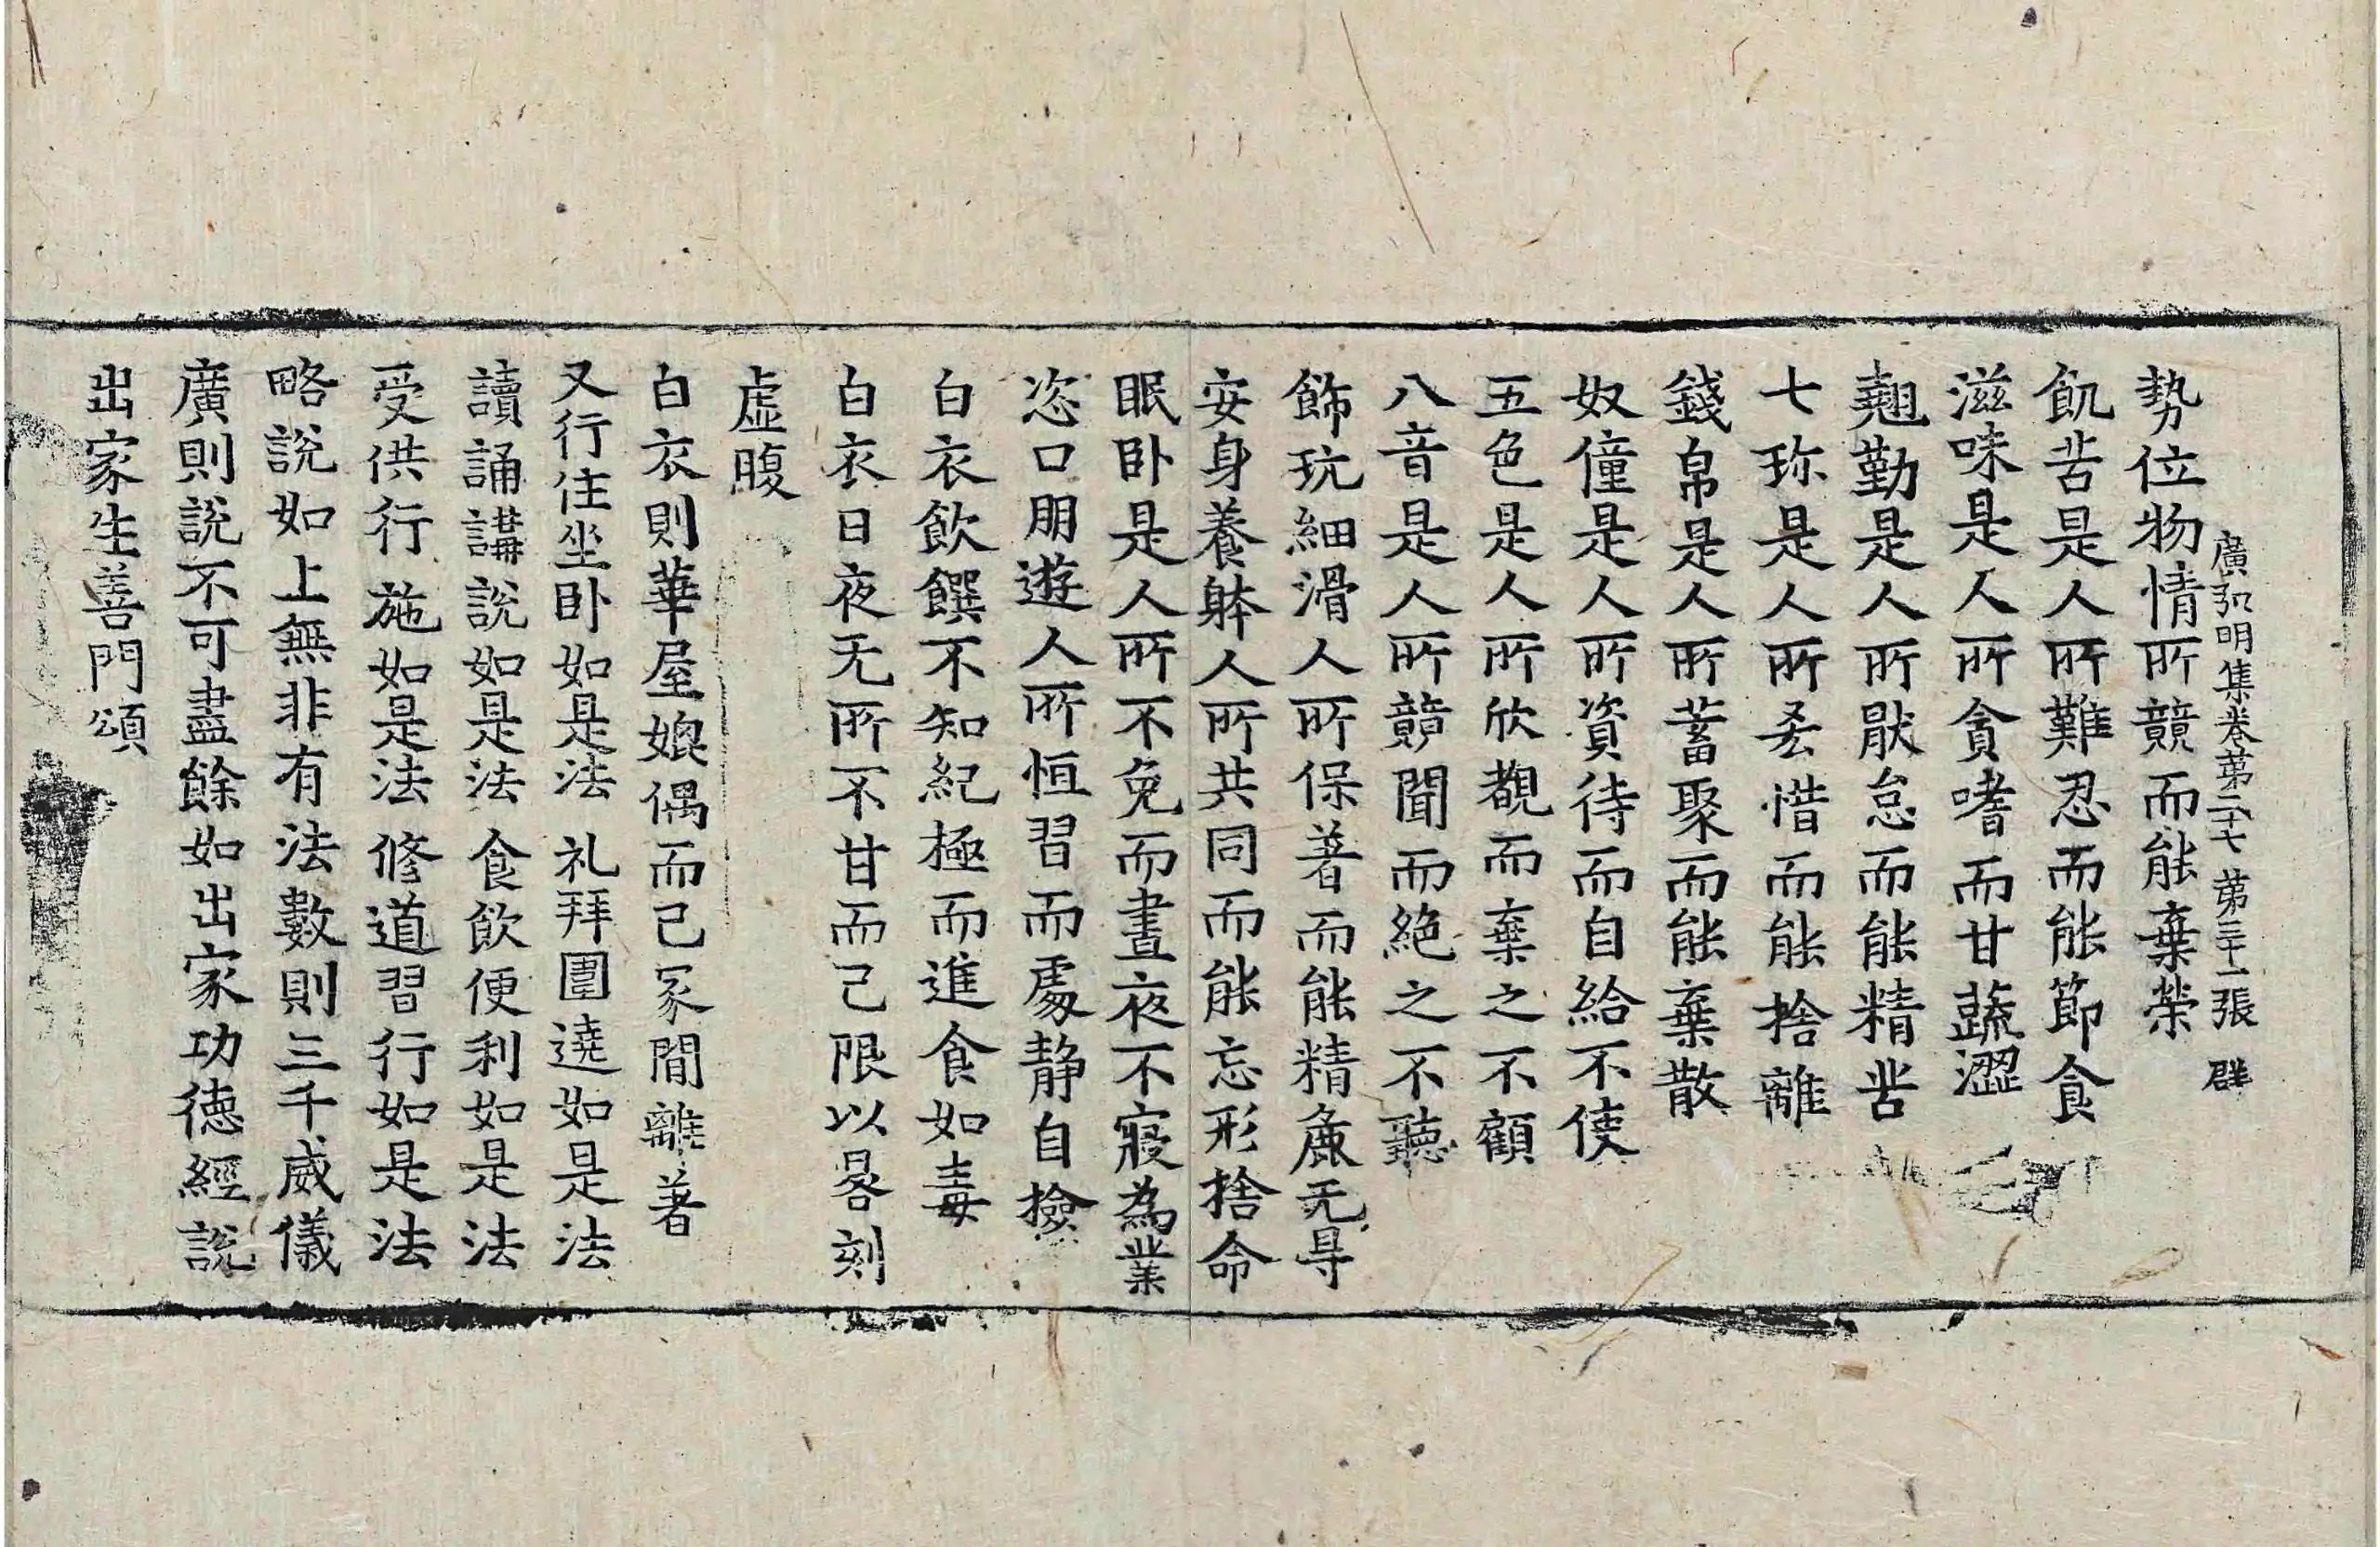 廣弘明集卷第二十七 第三十一張 群
勢位物情所競而能棄榮
飢苦是人所難忍而能節食
滋味是人所貪嗜而甘蔬澀
翹勤是人所厭怠而能精苦
七珎是人所悋惜而能捨離
錢帛是人所蓄聚而能棄散
奴僮是人所資待而自給不使
五色是人所欣覩而棄之不顧
八音是人所競聞而絕之不聽
飾玩細滑人所保著而能精麁无㝵
安身養躰人所共同而能忘形捨命
眠卧是人所不免而晝夜不寢為業
恣口朋遊人所恒習而處静自撿
白衣飲饌不知紀極而進食如毒
白衣日夜无所不甘而己限以晷刻
虛腹
白衣則華屋媲偶而己冢間離著
又行住坐卧如是法 礼拜圍遶如是法
讀誦講說如是法 食飲便利如是法
受供行施如是法 修道習行如是法
略說如上無非有法數則三千威儀
廣則說不可盡餘如出家功德經說
出家生善門頌